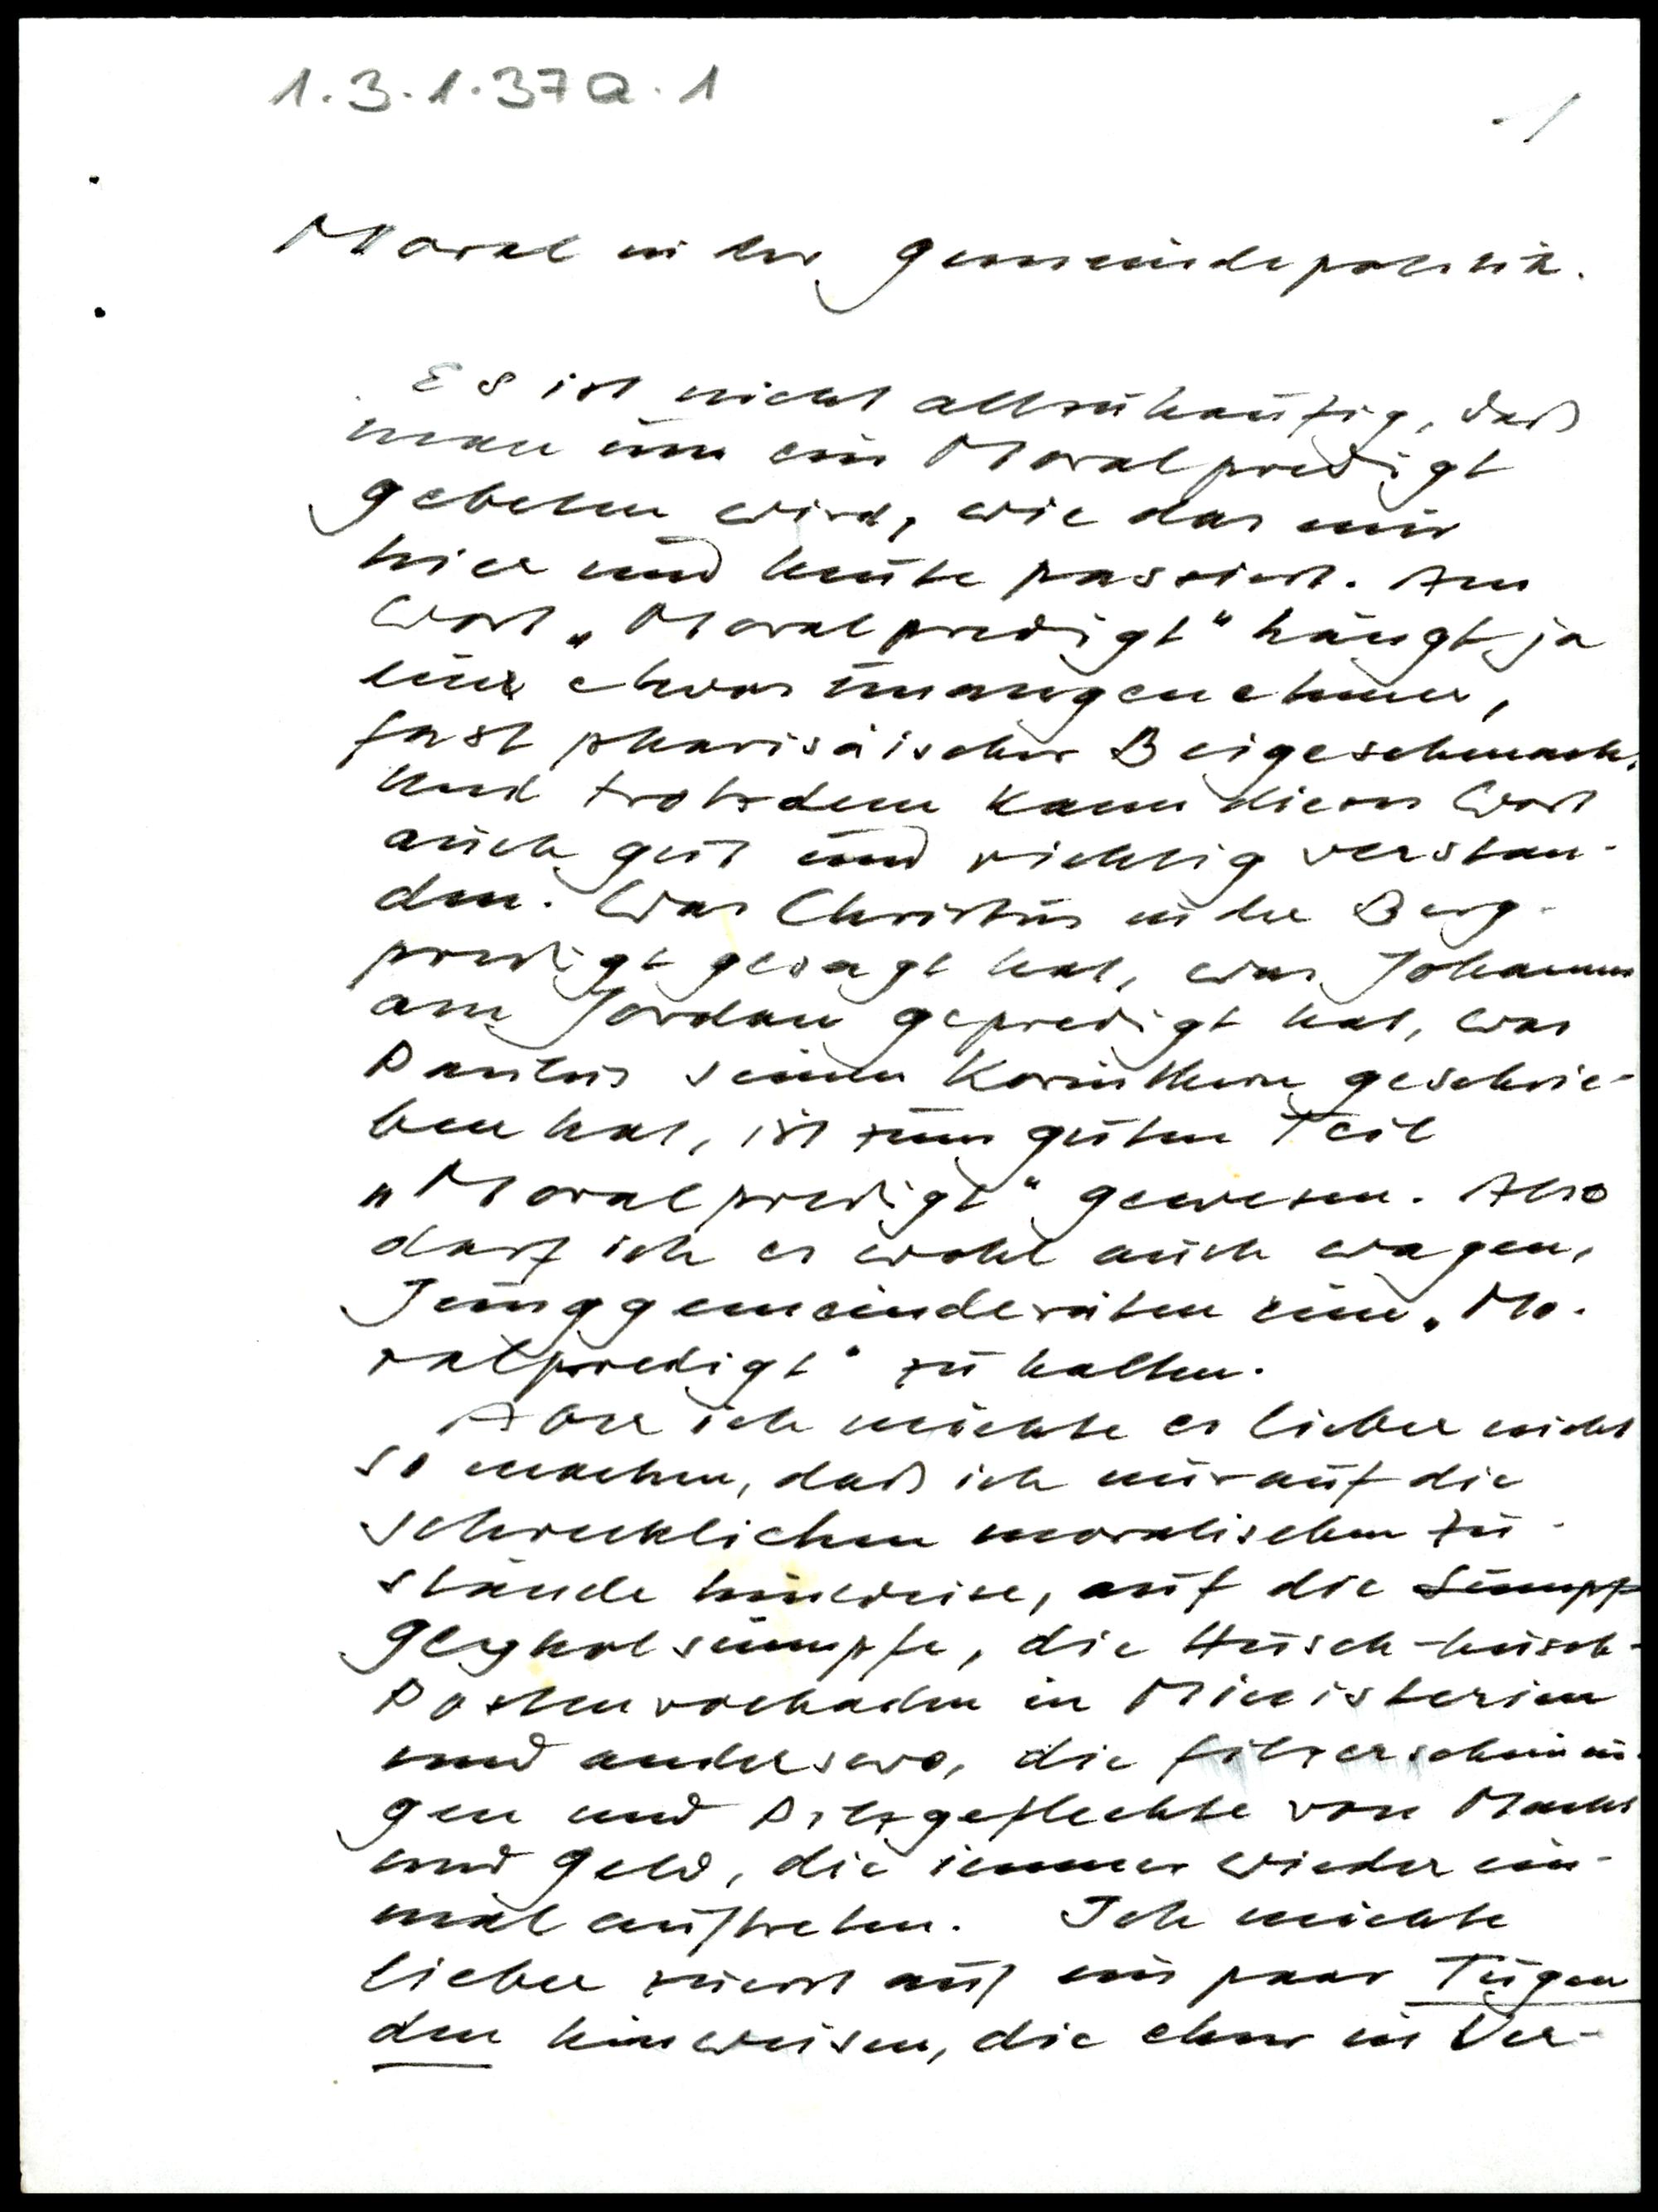 1.3.1.37a.1
1
Moral in der Gemeindepolitik.
Es ist nicht allzuhäufig, daß
man um ein Moralpredigt
gebeten wird, wie das mir
hier und heute passiert. Am
Wort „Moralpredigt" hängt ja
ein etwas unangenehmer,
fast pharisäischer Beigeschmack.
Und trotzdem kann dieses Wort
auch gut und richtig verstan-
den. Was Christus in der Berg-
predigt gesagt hat, was Johannes
am Jordan gepredigt hat, was
Paulus seinen Korinthern geschrie-
ben hat, ist zum guten Teil
„Moralpredigt" gewesen. Also
darf ich es wohl auch wagen,
Junggemeinderäten eine „Mo-
ralpredigt" zu halten.
Aber ich möchte es lieber nicht
so machen, daß ich nur auf die
schrecklichen moralischen Zu-
stände hinweise, auf die Sumpf
Glykolsümpfe, die Husch-husch-
in Ministerien
und anderswo, die Filzerscheinun-
gen und Pilzgeflechte von Macht
und Geld, die immer wieder ein-
mal auftreten. Ich möchte
lieber zuerst auf ein paar Tugen
den hinweisen, die eher in Ver-